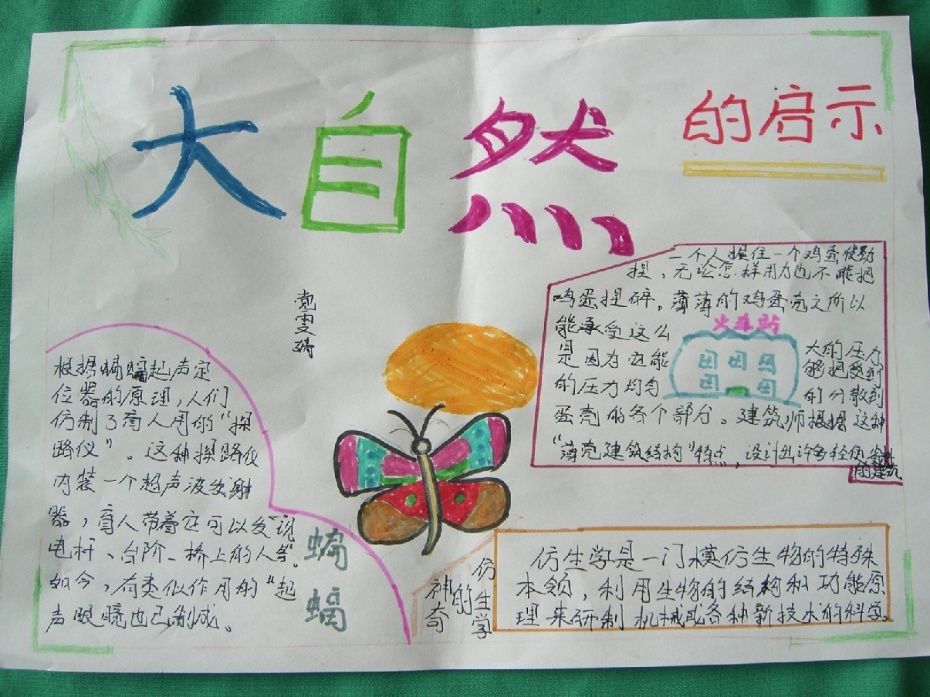 大自然
的启示
二个人握住一个鸡蛋使劲
捏，无论怎样用力也不能把
鸡蛋捏碎。薄薄的鸡蛋壳之所以
能承受这么
大的压力
是因为它能
够把受到
的压力均匀
的分散到
蛋壳的各个部分。建筑师根据这种
“薄壳建筑结构”特点，设计出许多
的建筑
火车站
根据蝙蝠超声定
位器的原理，人们
仿制了盲人用的“探
路仪”。这种探路仪
内装一个超声波发射
器，盲人带着它可以发现
电杆、台阶、桥上的人等。
如今，有类似作用的“超
声眼镜”也已制成。
蝙蝠
神奇的仿生学
仿生学是一门模仿生物的特殊
本领，利用生物的结构和功能原
理来研制机械或各种新技术的科学。